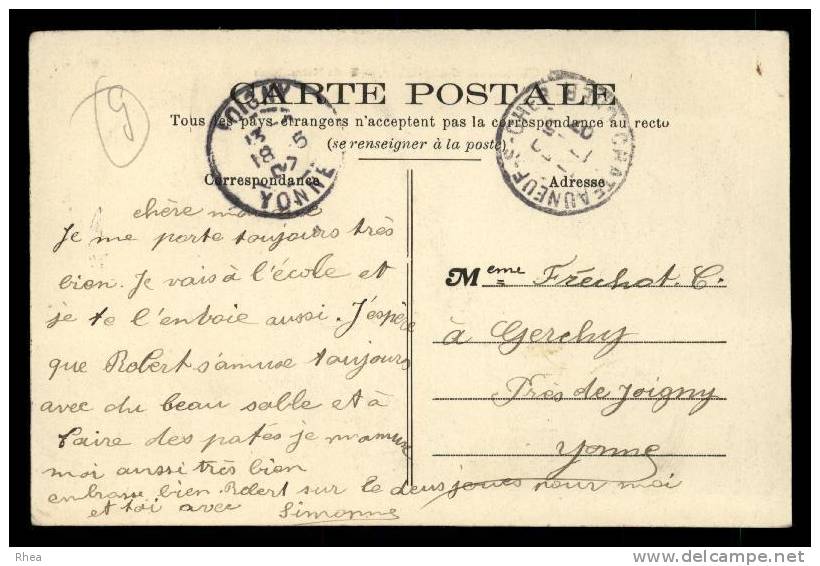 g
CARTE POSTALE
Tous les pays étrangers n'acceptent pas la correspondance au recto
(se renseigner à la poste)
Correspondance
Adresse
JOIGNY
18 - 5
07
YONNE
CHATEAUNEUF-S-CHER
chère
Je me porte toujours très
bien. Je vais à l'école et
je te l'envoie aussi. J'espère
que Robert s'amuse toujours
avec du beau sable et à
faire des patés je m'amuse
moi aussi très bien
embrasse bien Robert sur le deus joues pour moi
et toi avec Simonne
Meme Fréchot. C.
à Gerchy
Près de Joigny
Yonne
Rhea
delcampe.net